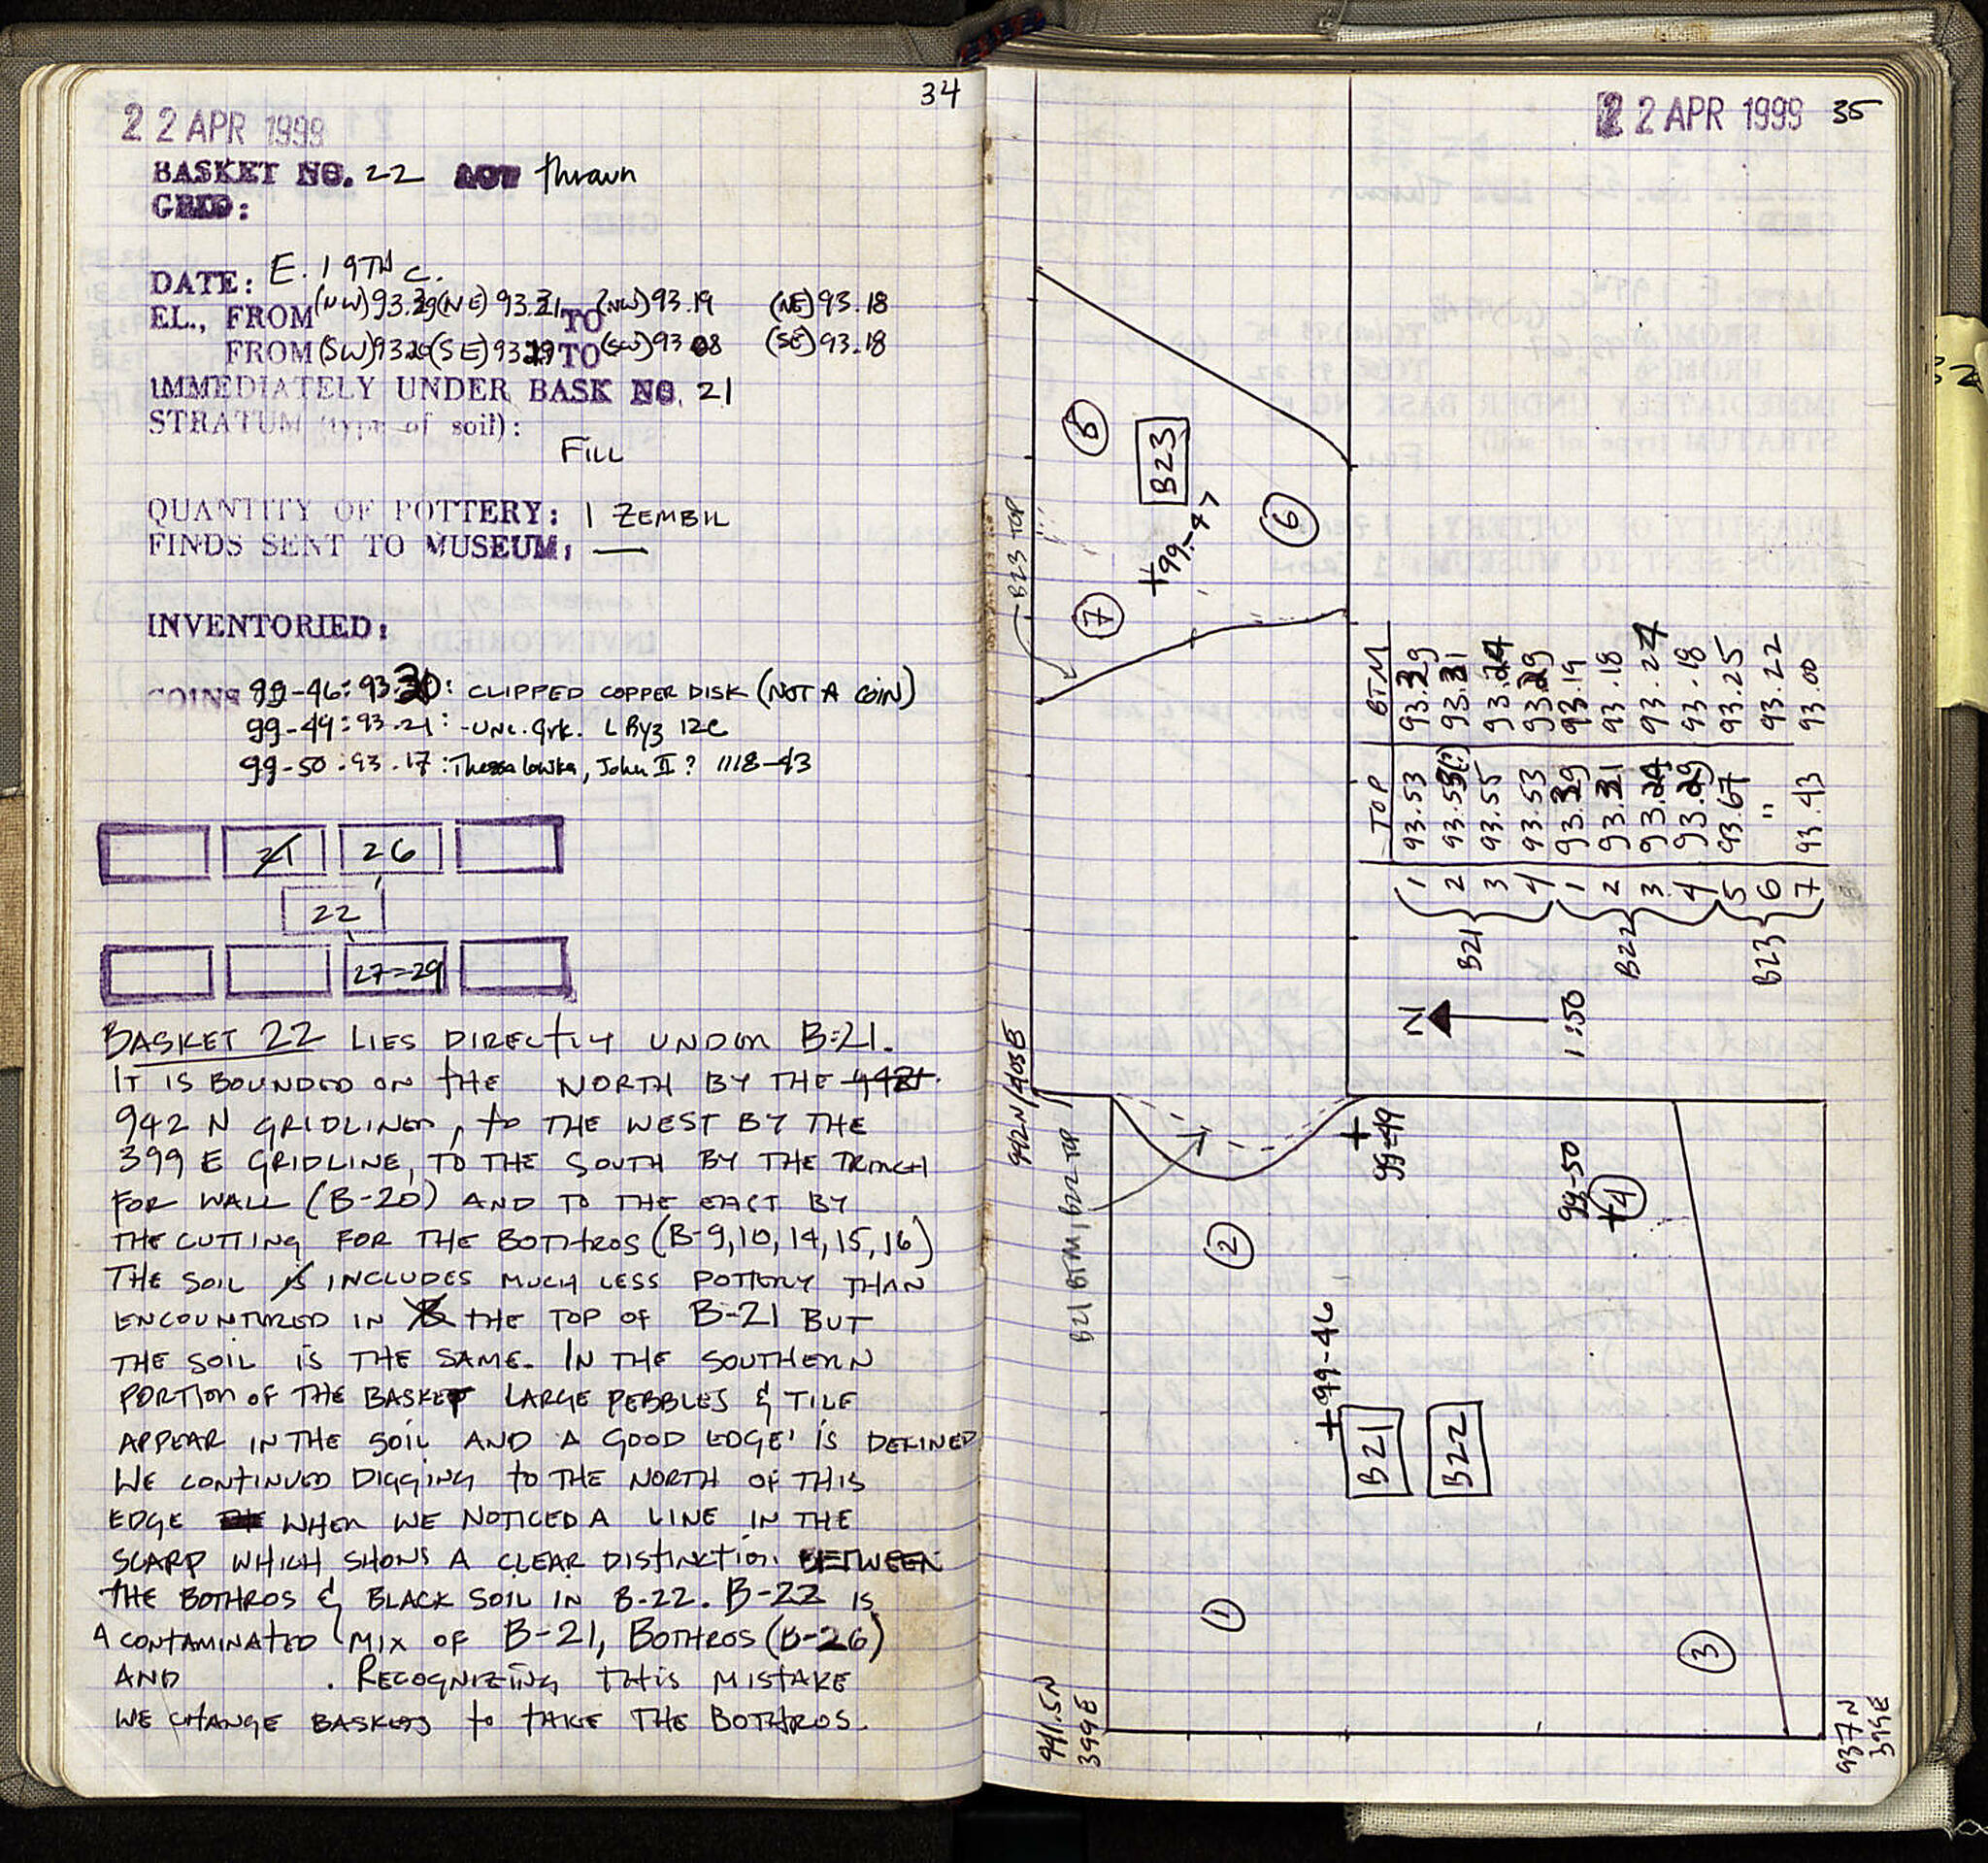 34
22 APR 1999
BASKET NO. 22 LOT thrown
GRID:
DATE: E. 19TH C.
EL., FROM (NW) 93.29 (NE) 93.21 TO (NW) 93.19 (NE) 93.18
FROM (SW) (SE) TO (SW) 93.08 (SE) 93.18
IMMEDIATELY UNDER BASK NO. 21
STRATUM (type of soil):
FILL
QUANTITY OF POTTERY: 1 ZEMBIL
FINDS SENT TO MUSEUM: —
INVENTORIED:
COINS 99-46: 93.30: CLIPPED COPPER DISK (NOT A COIN)
99-49: 93.21: -Unc. Grk. L Byz 12C
99-50: 93.17: Thessalonika, John II? 1118-43
21 26
22
27=29
BASKET 22 LIES DIRECTLY UNDER B-21.
IT IS BOUNDED ON THE NORTH BY THE
942 N GRIDLINE, TO THE WEST BY THE
399 E GRIDLINE, TO THE SOUTH BY THE TRENCH
FOR WALL (B-20) AND TO THE EAST BY
THE CUTTING FOR THE BOTHROS (B-9, 10, 14, 15, 16)
THE SOIL INCLUDES MUCH LESS POTTERY THAN
ENCOUNTERED IN THE TOP OF B-21 BUT
THE SOIL IS THE SAME. IN THE SOUTHERN
PORTION OF THE BASKET LARGE PEBBLES & TILE
APPEAR IN THE SOIL AND A GOOD 'EDGE' IS DEFINED
WE CONTINUED DIGGING TO THE NORTH OF THIS
EDGE WHEN WE NOTICED A LINE IN THE
SCARP WHICH SHOWS A CLEAR DISTINCTION BETWEEN
THE BOTHROS & BLACK SOIL IN B-22. B-22 IS
A CONTAMINATED MIX OF B-21, BOTHROS (B-26)
AND . RECOGNIZING THIS MISTAKE
WE CHANGE BASKETS TO TAKE THE BOTHROS.
22 APR 1999 35
8
B23
+99-47
6
7
B23 TOP
TOP BTM
B21 1 93.53 93.29
2 93.53(?) 93.31
3 93.55 93.24
4 93.53 93.29
B22 1 93.29 93.19
2 93.31 93.18
3 93.24 93.24
4 93.29 93.18
B23 5 93.67 93.25
6 " 93.22
7 93.43 93.00
N
1:50
942N/403E
B21 BTM, B22 TOP
+ 99-49
99-50 +
4
2
+99-46
B21
B22
1
3
941.5N
399E
937N
399E
32